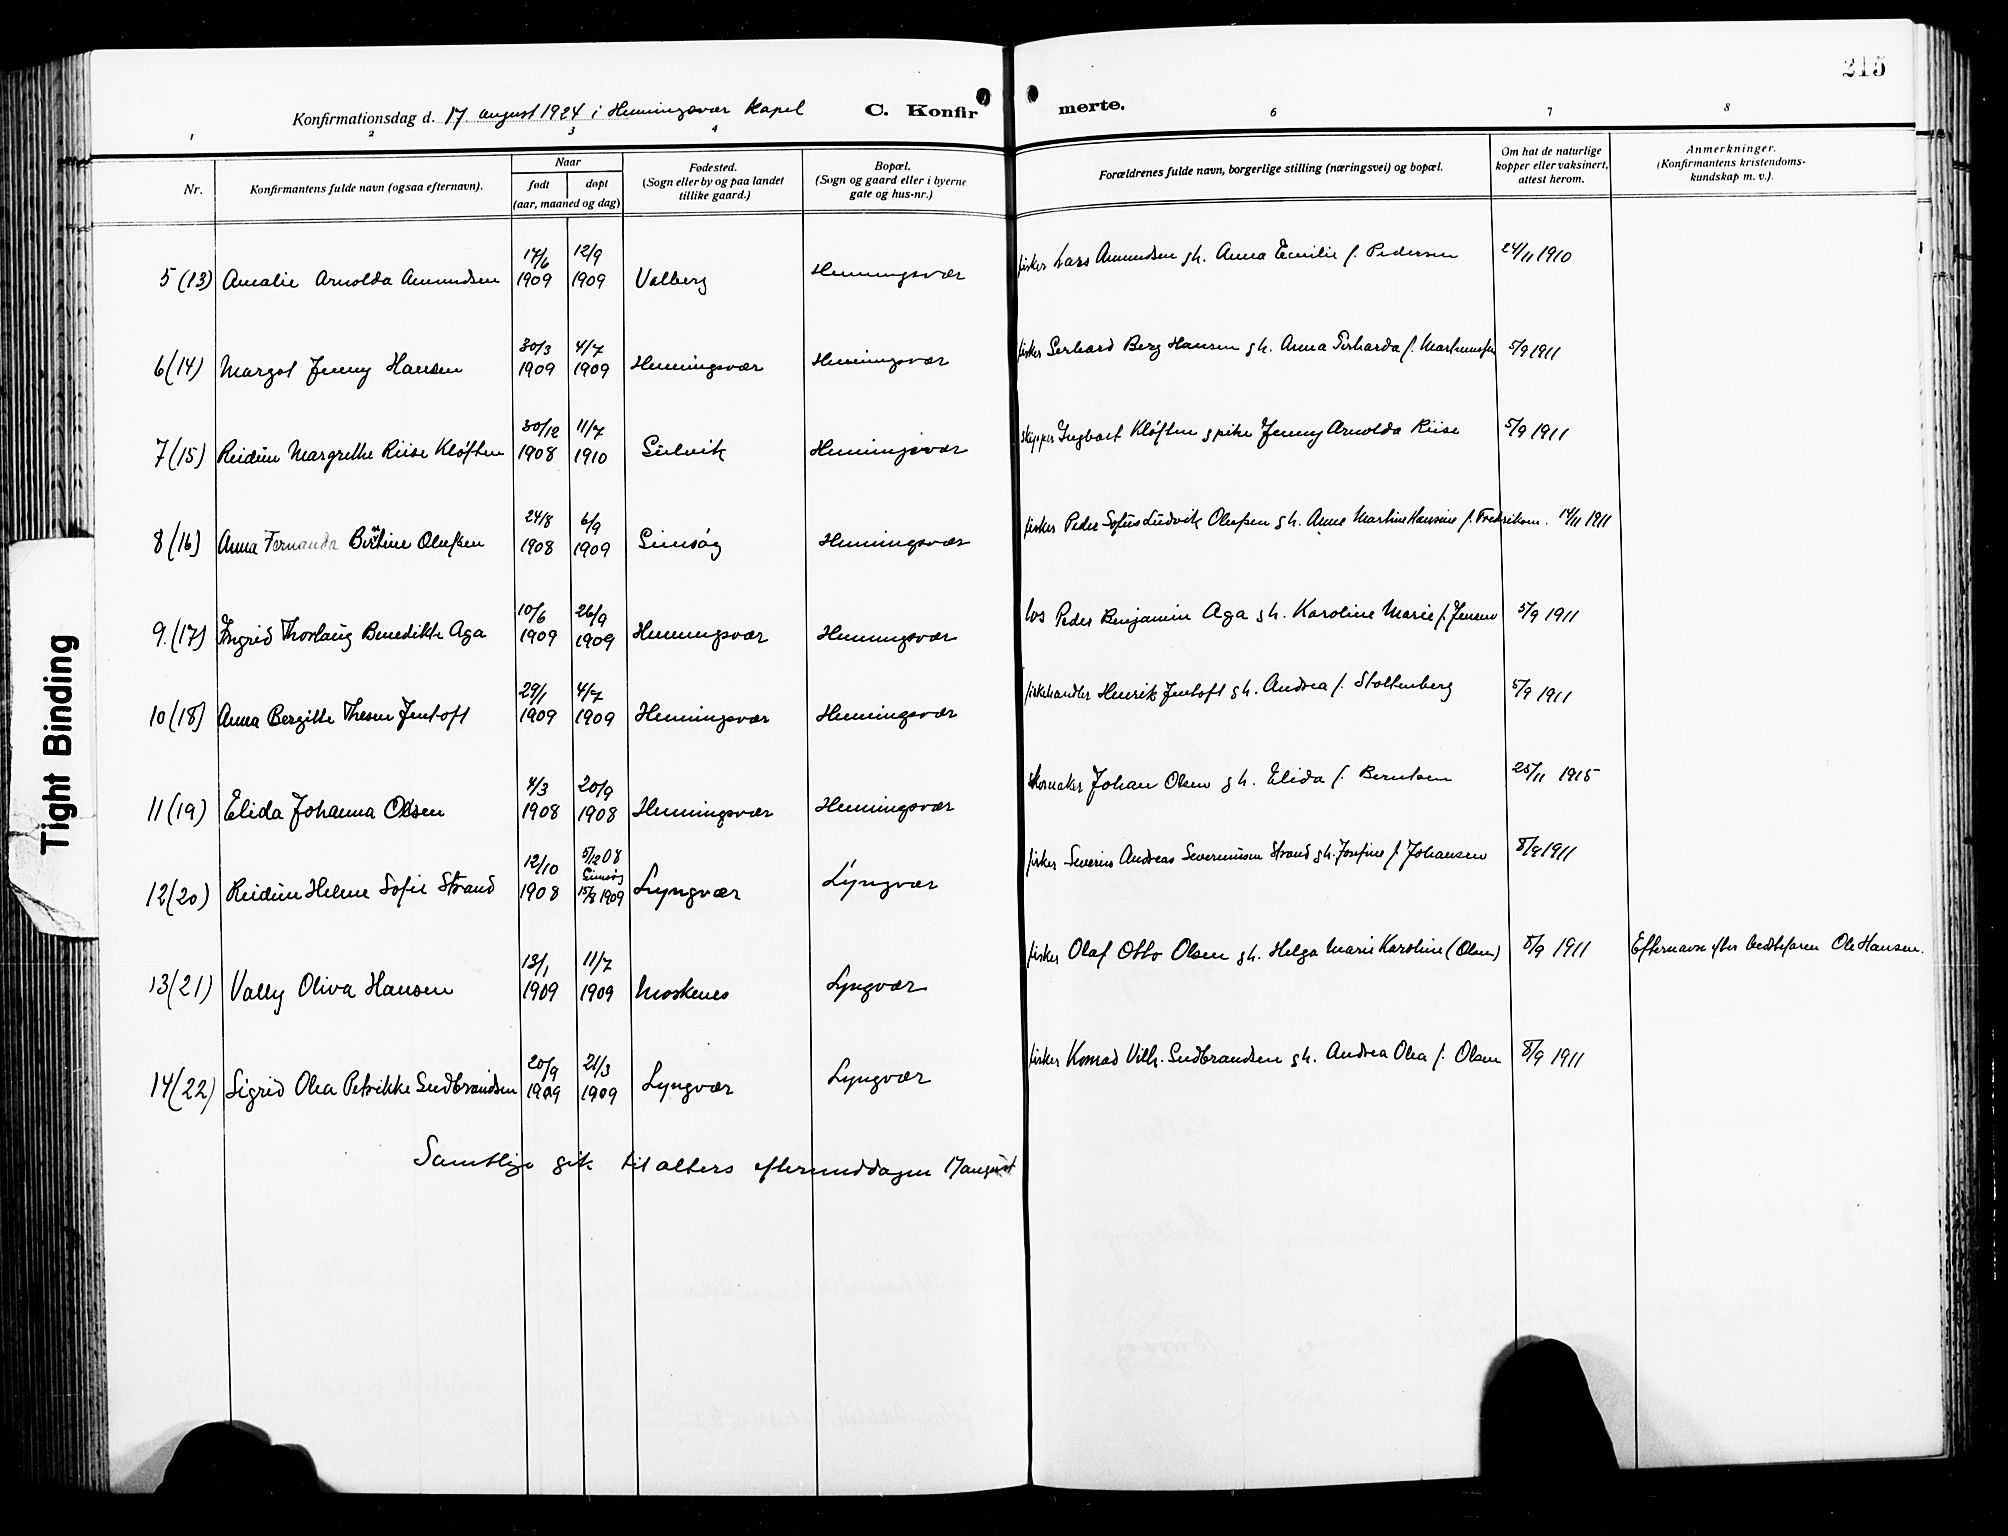 215
Konfirmationsdag d. 17 august 1924 i Henningsvær kapel C. Konfirmerte.
1 2 3 4 6 7 8
Nr.
Konfirmantens fulde navn (ogsaa efternavn).
Naar
født
døpt
(aar, maaned og dag)
Fødested.
(Sogn eller by og paa landet
tillike gaard.)
Bopæl.
(Sogn og gaard eller i byerne
gate og hus-nr.)
Forældrenes fulde navn, borgerlige stilling (næringsvei) og bopæl.
Om hat de naturlige
kopper eller vaksinert,
attest herom.
Anmerkninger.
(Konfirmantens kristendoms-
kundskap m. v.).
5 (13) Amalie Arnolda Amundsen 17/6 1909 12/9 1909 Valberg Henningsvær fisker Lars Amundsen gh. Anna Emilie f. Pedersen 24/11 1910
6 (14) Margot Jenny Hansen 30/3 1909 4/7 1909 Henningsvær Henningsvær fisker Gerhard Berg Hansen gh. Anna f. 5/9 1911
7 (15) Reidun Margrethe Riise Kløften 30/12 1908 11/7 1910 Henningsvær skipper Ingbart Kløften g pike Jenny Arnolda Riise 5/9 1911
8 (16) Anna Fernanda Olufsen 24/8 1908 6/9 1909 Gimsøy Henningsvær fisker Peder Sofus Ludvik Olufsen gh. Anne Martine Hansine f. Fredriksen. 14/11 1911
9. (17) Ingrid Thorlaug Benedikte Aga 10/6 1909 26/9 1909 Henningsvær Henningsvær los Peder Benjamin Aga gh. Karoline Marie f. Jensen 5/9 1911
10 (18) Anna Bergitte Thesen Jentoft 29/1 1909 4/7 1909 Henningsvær Henningsvær fiskehandler Henrik Jentoft gh. Andrea f. Stoltenberg 5/9 1911
11 (19) Elida Johanna Olsen 4/3 1908 20/9 1908 Henningsvær Henningsvær skomaker Johan Olsen gh. Elida f. Berntsen 25/11 1915
12 (20) Reidun Helene Sofie Strand 12/10 1908 5/12 08 Gimsøy 15/8 1909 Lyngvær Lyngvær fisker Severin Andreas Severinsen Strand gh. Josefine f. Johansen 8/9 1911
13 (21) Vally Oliva Hansen 13/1 1909 11/7 1909 Moskenes Lyngvær fisker Olaf Otto Olsen gh. Helga Marie Karoline (Olsen) 8/9 1911 Efternavn efter bedstefaren Ole Hansen.
14 (22) Sigrid Olea Petrikke Gudbrandsen 20/9 1909 21/3 1909 Lyngvær Lyngvær fisker Konrad Vilh. Gudbrandsen gh. Andrea Olea f. Olsen 8/9 1911
Samtlige gik til alters eftermiddagen 17 august
Tight Binding